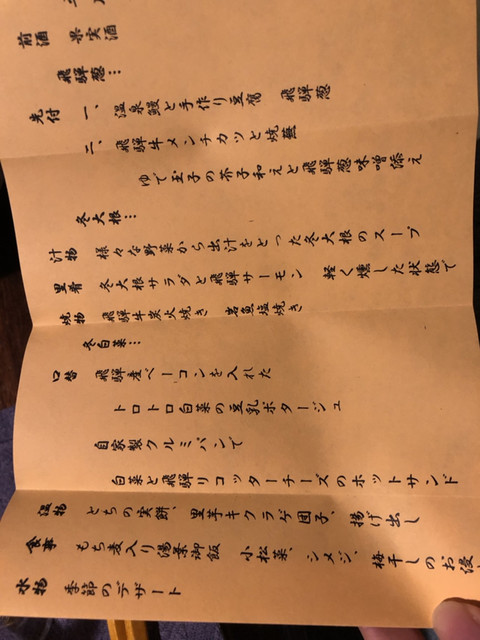 前酒　果実酒
飛騨葱…
先付　一、　温泉鰻と手作り豆腐　飛騨葱
二、　飛騨牛メンチカツと焼蕪
ゆで玉子の芥子和えと飛騨葱味噌添え
冬大根…
汁物　様々な野菜から出汁をとった冬大根のスープ
里肴　冬大根サラダと飛騨サーモン　軽く燻した状態で
焼物　飛騨牛炭火焼き　岩魚塩焼き
冬白菜…
口替　飛騨産ベーコンを入れた
トロトロ白菜の豆乳ポタージュ
自家製クルミパンで
白菜と飛騨リコッターチーズのホットサンド
温物　とちの実餅、里芋キクラゲ団子、揚げ出し
食事　もち麦入り湯景御飯　小松菜、シメジ、梅干しのお浸
水物　季節のデザート